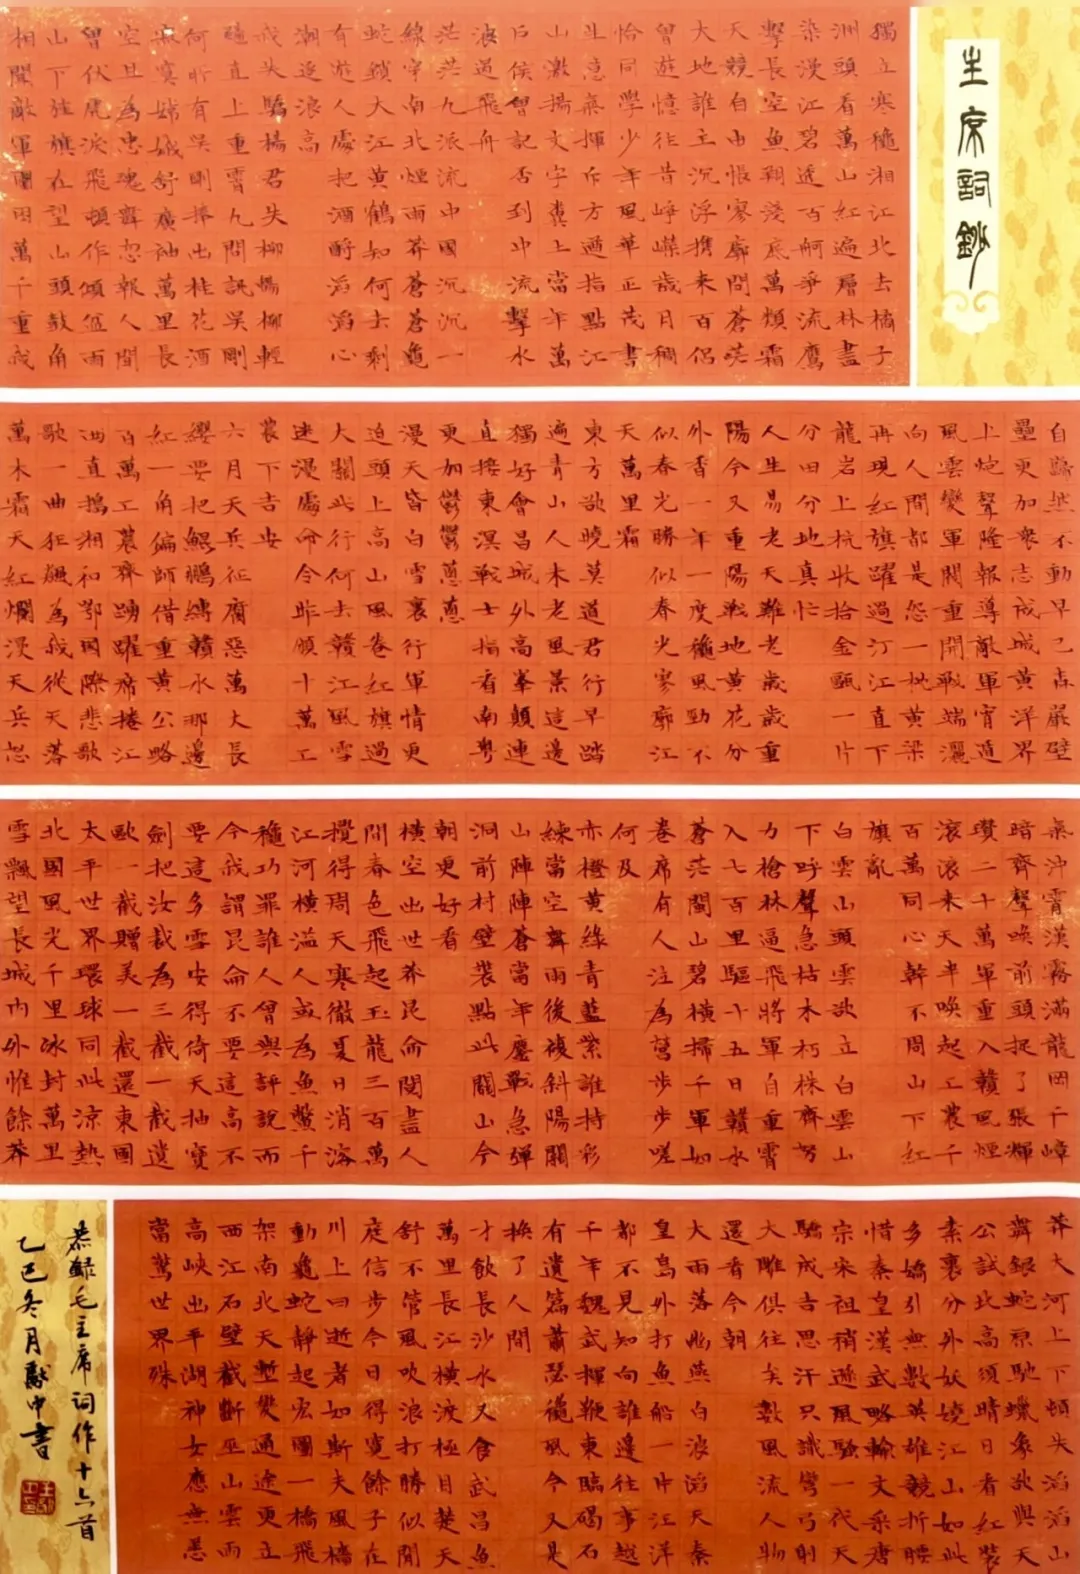 主席詞鈔
獨立寒穐湘江北去橘子
洲頭看萬山紅遍層林盡
染漫江碧透百舸爭流鷹
擊長空魚翔淺底萬類霜
天競自由悵寥廓問蒼茫
大地誰主沉浮攜來百侶
曾遊憶往昔崢嶸歲月稠
恰同學少年風華正茂書
生意氣揮斥方遒指點江
山激揚文字糞土當年萬
户侯曾記否到中流擊水
浪遏飛舟
茫茫九派流中國沉沉一
綫穿南北煙雨莽蒼蒼龜
蛇鎖大江黃鶴知何去剩
有遊人處把酒酹滔滔心
潮逐浪高
我失驕楊君失柳楊柳輕
颺直上重霄九問訊吳剛
何所有吳剛捧出桂花酒
寂寞嫦娥舒廣袖萬里長
空且為忠魂舞忽報人間
曾伏虎淚飛頓作傾盆雨
山下旌旗在望山頭鼓角
相聞敵軍圍困萬千重我
自巋然不動早已森嚴壁
壘更加衆志成城黃洋界
上炮聲隆報導敵軍宵遁
風雲變軍閥重開戰端灑
向人間都是怨一枕黃梁
再現紅旗躍過汀江直下
龍岩上杭收拾金甌一片
分田分地真忙
人生易老天難老歲歲重
陽今又重陽戰地黃花分
外香一年一度穐風勁不
似春光勝似春光寥廓江
天萬里霜
東方欲曉莫道君行早踏
遍青山人未老風景這邊
獨好會昌城外高峯顛連
直接東溟戰士指看南粵
更加鬱鬱葱葱
漫天皆白雪裏行軍情更
迫頭上高山風卷紅旗過
大關此行何去贛江風雪
迷漫處命令昨頒十萬工
農下吉安
六月天兵征腐惡萬丈長
纓要把鯤鵬縛贛水那邊
紅一角偏師借重黃公略
百萬工農齊踴躍席捲江
西直搗湘和鄂國際悲歌
歌一曲狂飆為我從天落
萬木霜天紅爛漫天兵怒
氣沖霄漢霧滿龍岡千嶂
暗齊聲喚前頭捉了張輝
瓚二十萬軍重入贛風煙
滾滾來天半喚起工農千
百萬同心幹不周山下紅
旗亂
白雲山頭雲欲立白雲山
下呼聲急枯木朽株齊努
力槍林逼飛將軍自重霄
入七百里驅十五日贛水
蒼茫閩山碧橫掃千軍如
卷席有人泣為營步步嗟
何及
赤橙黃綠青藍紫誰持彩
練當空舞雨後複斜陽關
山陣陣蒼當年鏖戰急彈
洞前村壁裝點此關山今
朝更好看
橫空出世莽昆侖閱盡人
間春色飛起玉龍三百萬
攪得周天寒徹夏日消溶
江河橫溢人或為魚鱉千
穐功罪誰人曾與評說而
今我謂昆侖不要這高不
要這多雪安得倚天抽寶
劍把汝裁為三截一截遺
歐一截贈美一截還東國
太平世界環球同此涼熱
北國風光千里冰封萬里
雪飄望長城內外惟餘莽
莽大河上下頓失滔滔山
舞銀蛇原馳蠟象欲與天
公試比高須晴日看紅裝
素裹分外妖嬈江山如此
多嬌引無數英雄競折腰
惜秦皇漢武略輸文采唐
宗宋祖稍遜風騷一代天
驕成吉思汗只識彎弓射
大雕俱往矣數風流人物
還看今朝
大雨落幽燕白浪滔天秦
皇島外打魚船一片汪洋
都不見知向誰邊往事越
千年魏武揮鞭東臨碣石
有遺篇蕭瑟穐風今又是
換了人間
才飲長沙水又食武昌魚
萬里長江橫渡極目楚天
舒不管風吹浪打勝似閒
庭信步今日得寬餘子在
川上曰逝者如斯夫風檣
動龜蛇靜起宏圖一橋飛
架南北天塹變通途更立
西江石壁截斷巫山雲雨
高峽出平湖神女應無恙
當驚世界殊
恭錄毛主席詞作十六首
乙巳冬月獻中書